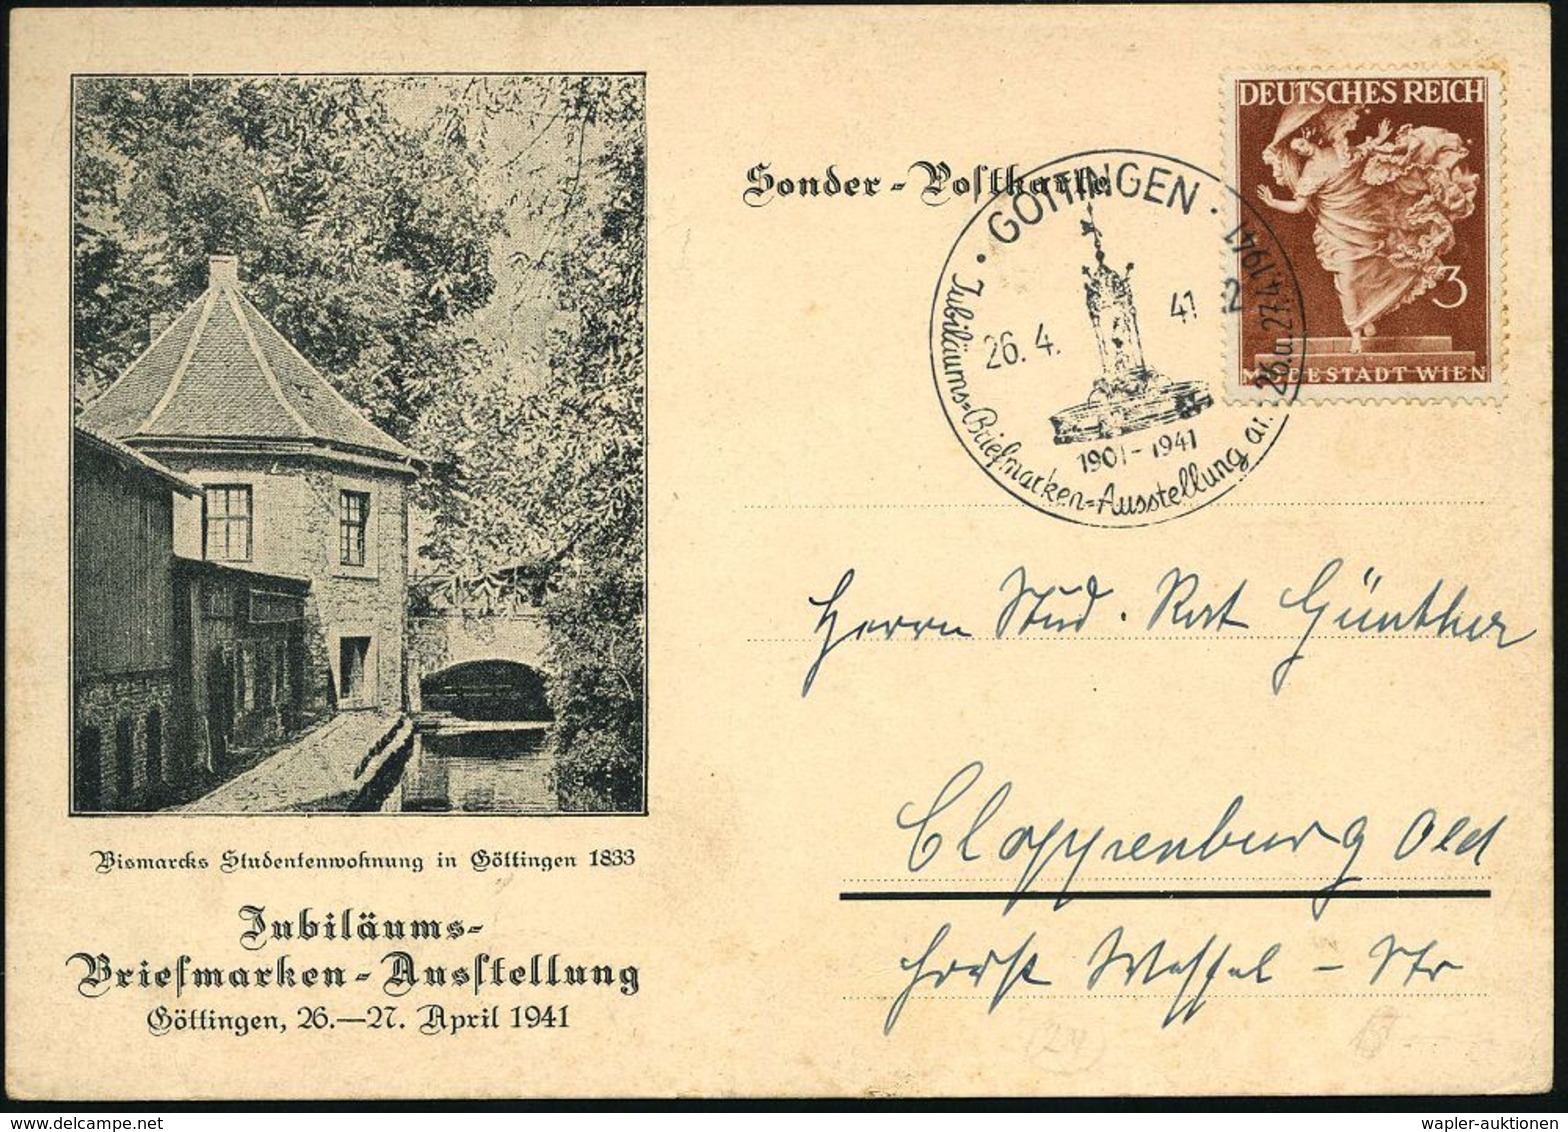 Sonder-Postkarte
DEUTSCHES REICH
3
MODESTADT WIEN
· GÖTTINGEN ·
26. 4. 41 2
1901-1941
Jubiläums-Briefmarken-Ausstellung am 26.u.27.4.1941
Herrn Stud. Rat Günther
Cloppenburg Old
Horst Wessel - Str
Bismarcks Studentenwohnung in Göttingen 1833
Jubiläums-
Briefmarken-Ausstellung
Göttingen, 26.—27. April 1941
(24)
wapler-auktionen
© delcampe.net